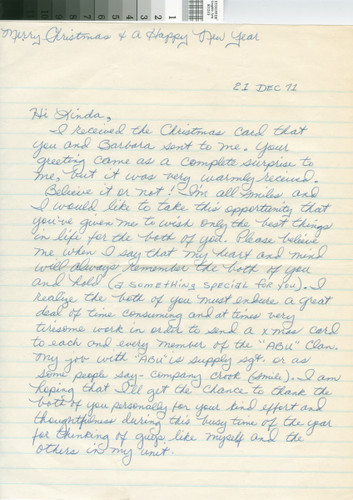 Merry Christmas & a Happy New Year
21 DEC 71
Hi Linda,
I received the Christmas card that
you and Barbara sent to me. Your
greeting came as a complete surprise to
me, but it was very warmly received.
Believe it or not! I'm all smiles and
I would like to take this opportunity that
you've given me to wish only the best things
in life for the both of you. Please believe
me when I say that my heart and mind
will always remember the both of you
and hold (a something special for you). I
realize the both of you must endure a great
deal of time consuming and at times very
tiresome work in order to send a x mas card
to each and every member of the "ABU" Clan.
My job with "ABU" is supply sgt. or as
some people say - company crook (smile). I am
hoping that I'll get the chance to thank the
both of you personally for your kind effort and
thoughtfulness during this busy time of the year
for thinking of guys like myself and the
others in my unit.